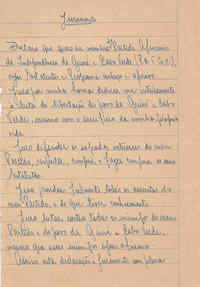 Juramento
Declaro que quero ser membro do Partido Africano
da Independência da Guiné e Cabo Verde (P.A.I.G.C.),
cujo Estatuto e Programa conheço e aprovo.
Juro por minha honra dedicar-me inteiramente
à luta de libertação do povo da Guiné e Cabo
Verde, mesmo com o sacrifício da minha própria
vida.
Juro defender os sagrados interesses do meu
Partido, respeitar, cumprir e fazer cumprir os seus
Estatutos.
Juro guardar fielmente todos os segredos do
meu Partido, e de que tiver conhecimento.
Juro lutar contra todos os inimigos do meu
Partido e do povo da Guiné e Cabo Verde,
mesmo que esses inimigos sejam
Assino esta declaração e juramento com